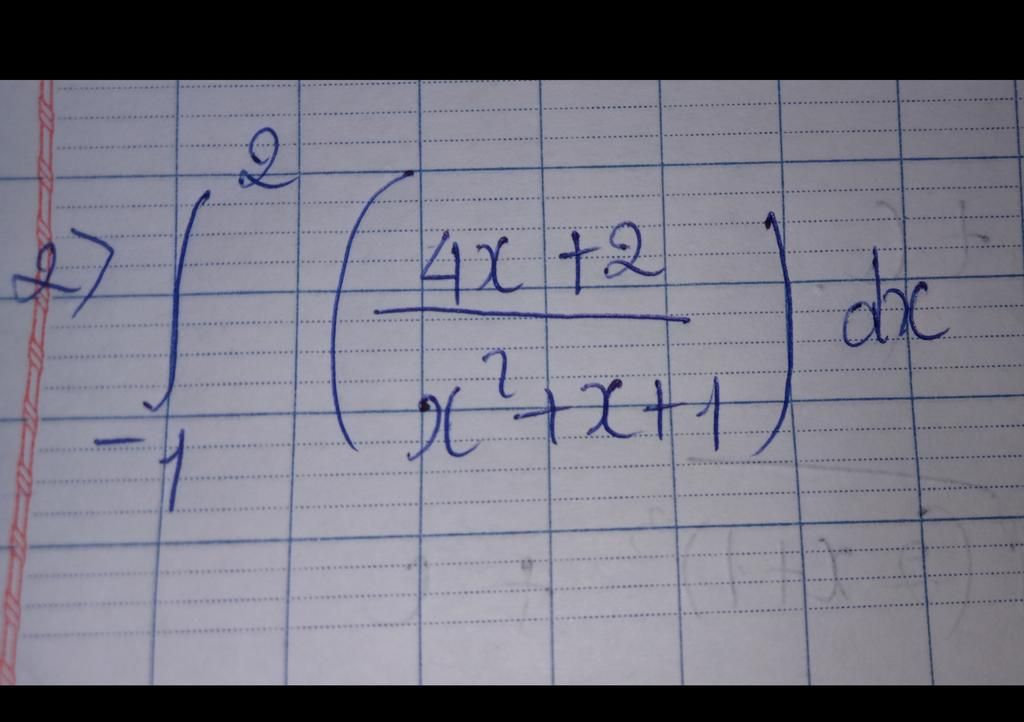 2) ∫_{-1}^{2} ( (4x + 2) / (x² + x + 1) ) dx